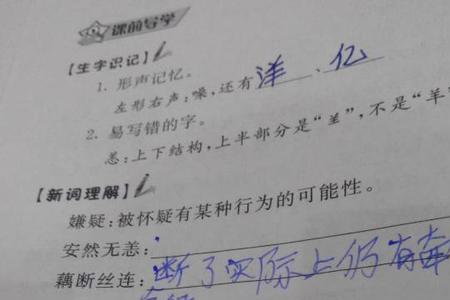 课前导学
【生字识记】
1. 形声记忆。
左形右声:嗓,还有洋、亿
2. 易写错的字。
恙:上下结构,上半部分是“𦍌”,不是“羊
【新词理解】
嫌疑:被怀疑有某种行为的可能性。
安然无恙:
藕断丝连:断了实际上仍有牵